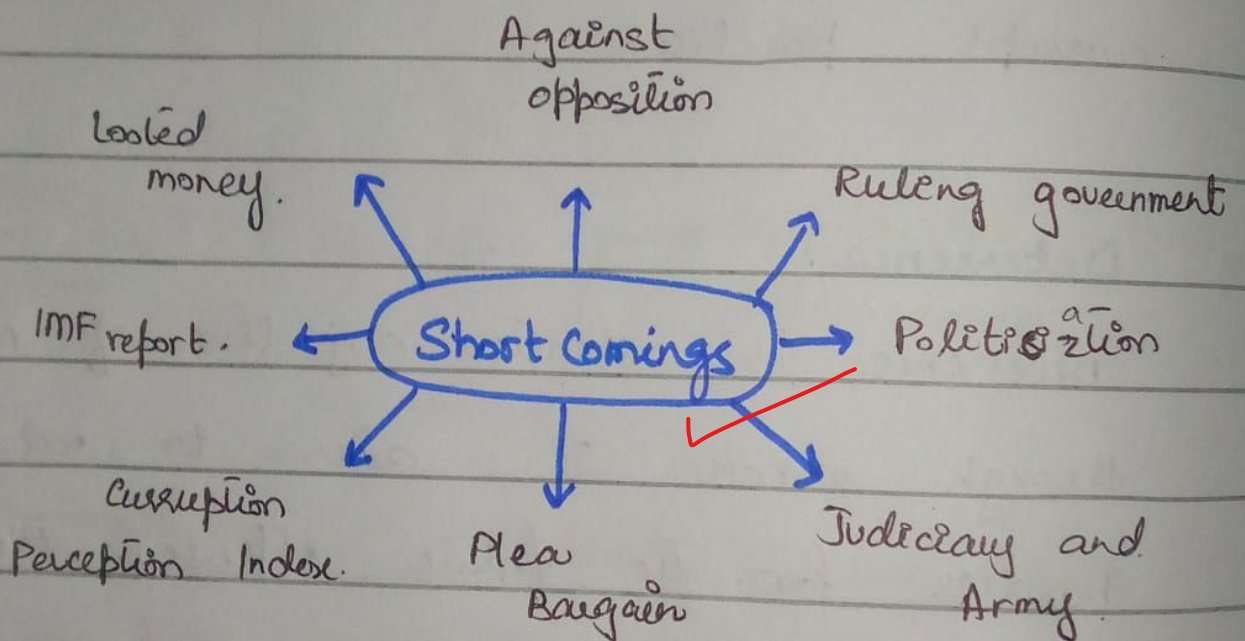 Against
opposition
Looted
money.
Ruling government
IMF report.
Short Comings
Politisization
Curruption
Perception Index.
Plea
Bargain
Judiciary and
Army.